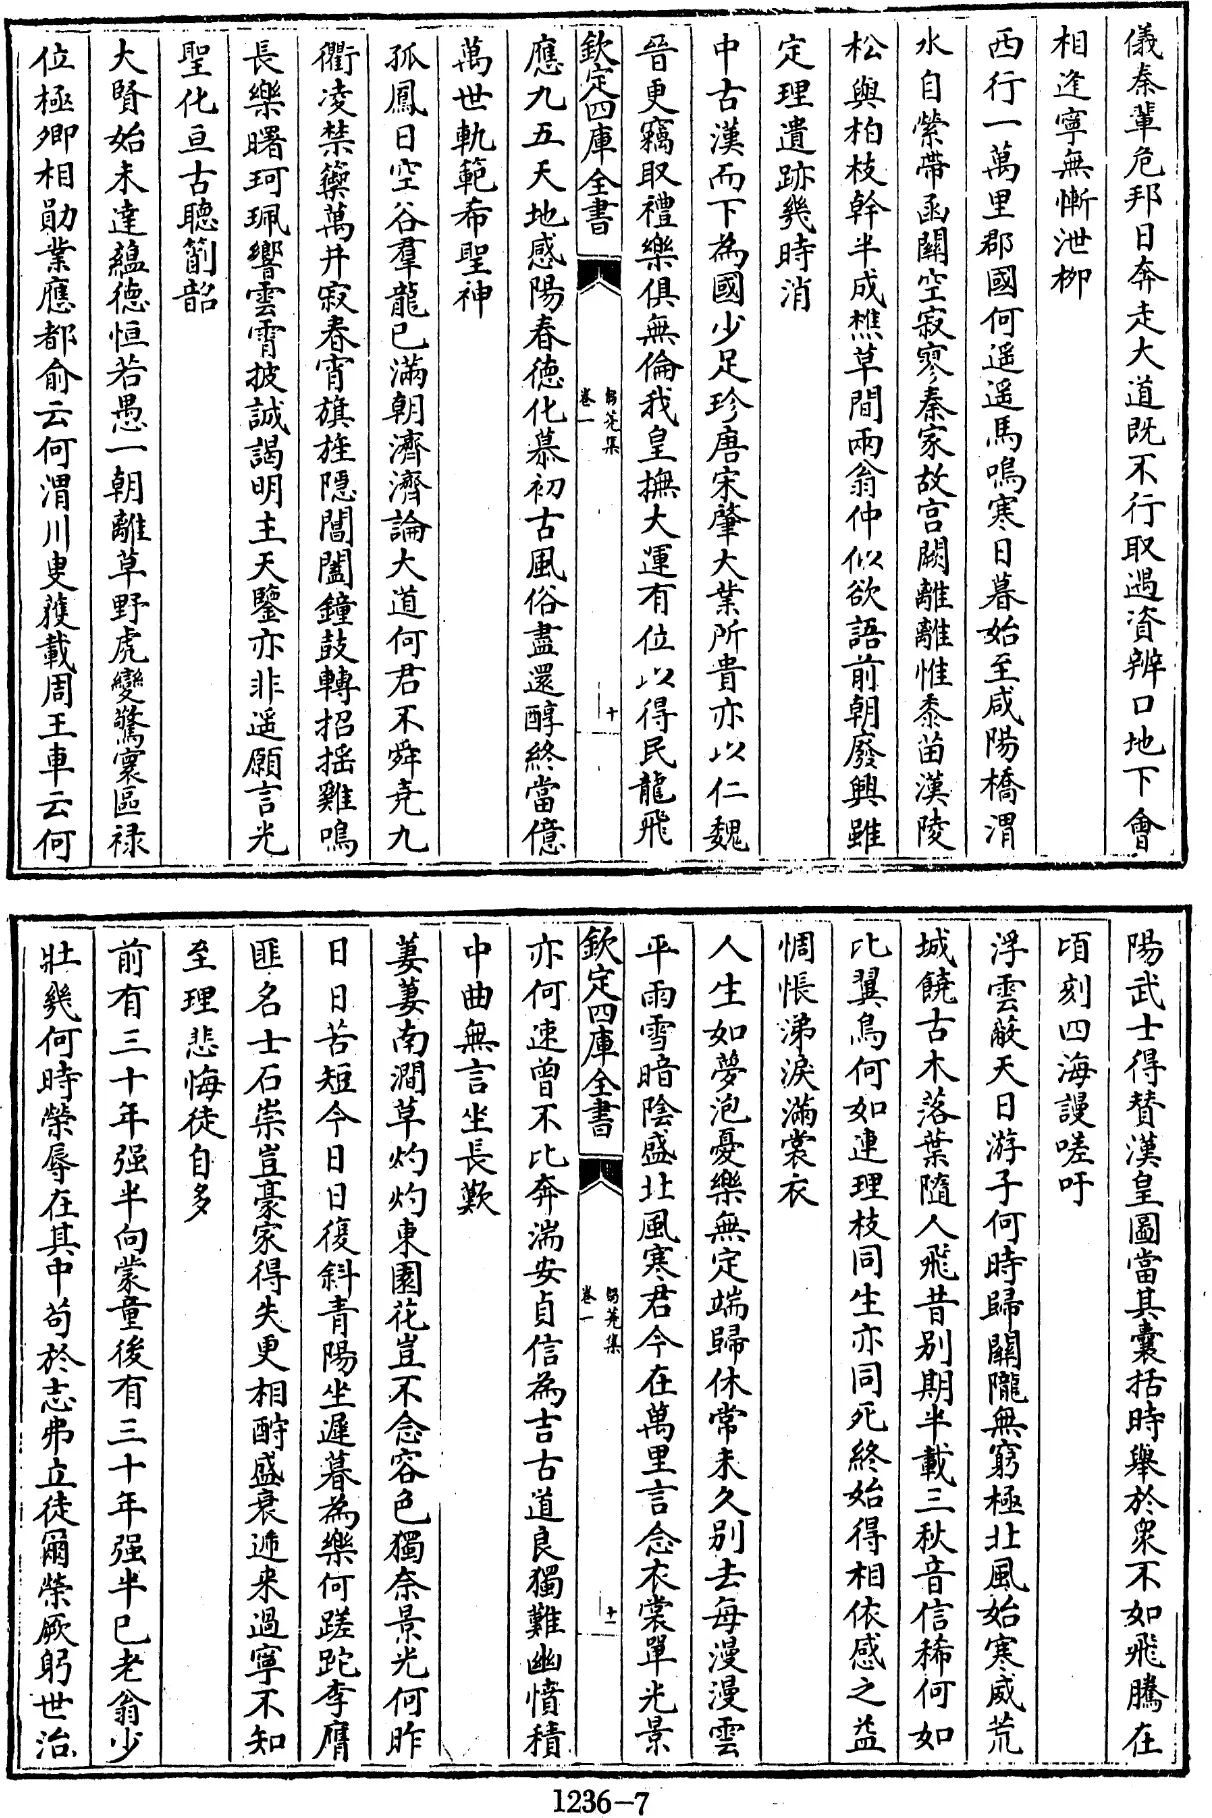 儀秦輩危邦日奔走大道既不行取過資辨口地下會
相逢寧無慚泄柳
西行一萬里郡國何遥遥馬鳴寒日暮始至咸陽橋渭
水自縈帶函關空寂寥秦家故宫闕離離惟黍苗漢陵
松與柏枝幹半成樵草間兩翁仲似欲語前朝廢興雖
定理遺跡幾時消
中古漢而下為國少足珍唐宋肇大業所貴亦以仁魏
晉更竊取禮樂俱無倫我皇撫大運有位以得民龍飛
欽定四庫全書
卷一
芻蕘集
十
應九五天地感陽春徳化慕初古風俗盡還醇終當億
萬世軌範希聖神
孤鳳日空谷羣龍已滿朝濟濟論大道何君不舜堯九
衢凌禁籞萬井寂春宵旗旌隱閶闔鐘鼓轉招揺雞鳴
長樂曙珂珮響雲霄披誠謁明主天鑒亦非遥願言光
聖化亘古聴箾韶
大賢始未達藴徳恒若愚一朝離草野虎變驚寰區禄
位極卿相勛業應都俞云何渭川叟䕶載周王車云何
陽武士得賛漢皇圖當其囊括時舉於衆不如飛騰在
頃刻四海謾嗟吁
浮雲蔽天日游子何時歸關隴無窮極北風始寒威荒
城饒古木落葉隨人飛昔别期半載三秋音信稀何如
比翼鳥何如連理枝同生亦同死終始得相依感之益
惆悵涕淚滿裳衣
人生如夢泡憂樂無定端歸休常未久别去每漫漫雲
平雨雪暗陰盛北風寒君今在萬里言念衣裳單光景
欽定四庫全書
卷一
芻蕘集
十一
亦何速曾不比奔湍安貞信為吉古道良獨難幽憤積
中曲無言坐長歎
萋萋南澗草灼灼東園花豈不念容色獨奈景光何昨
日日苦短今日日復斜青陽坐遲暮為樂何蹉跎李膺
匪名士石崇豈豪家得失更相酧盛衰遞来過寧不知
至理悲悔徒自多
前有三十年强半向蒙童後有三十年强半已老翁少
壮幾何時榮辱在其中苟於志弗立徒爾榮厥躬世治
1236-7